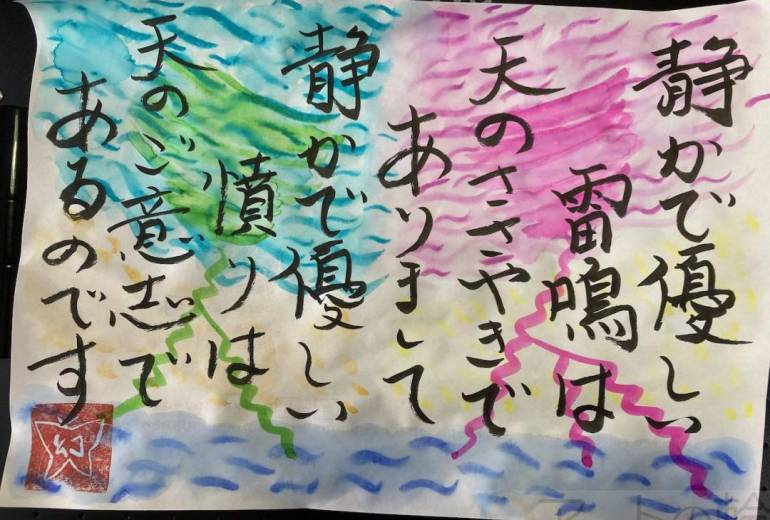 静かで優しい
雷鳴は
天のささやきで
ありまして
静かで優しい
憤りは
天のご意志で
あるのです
幻